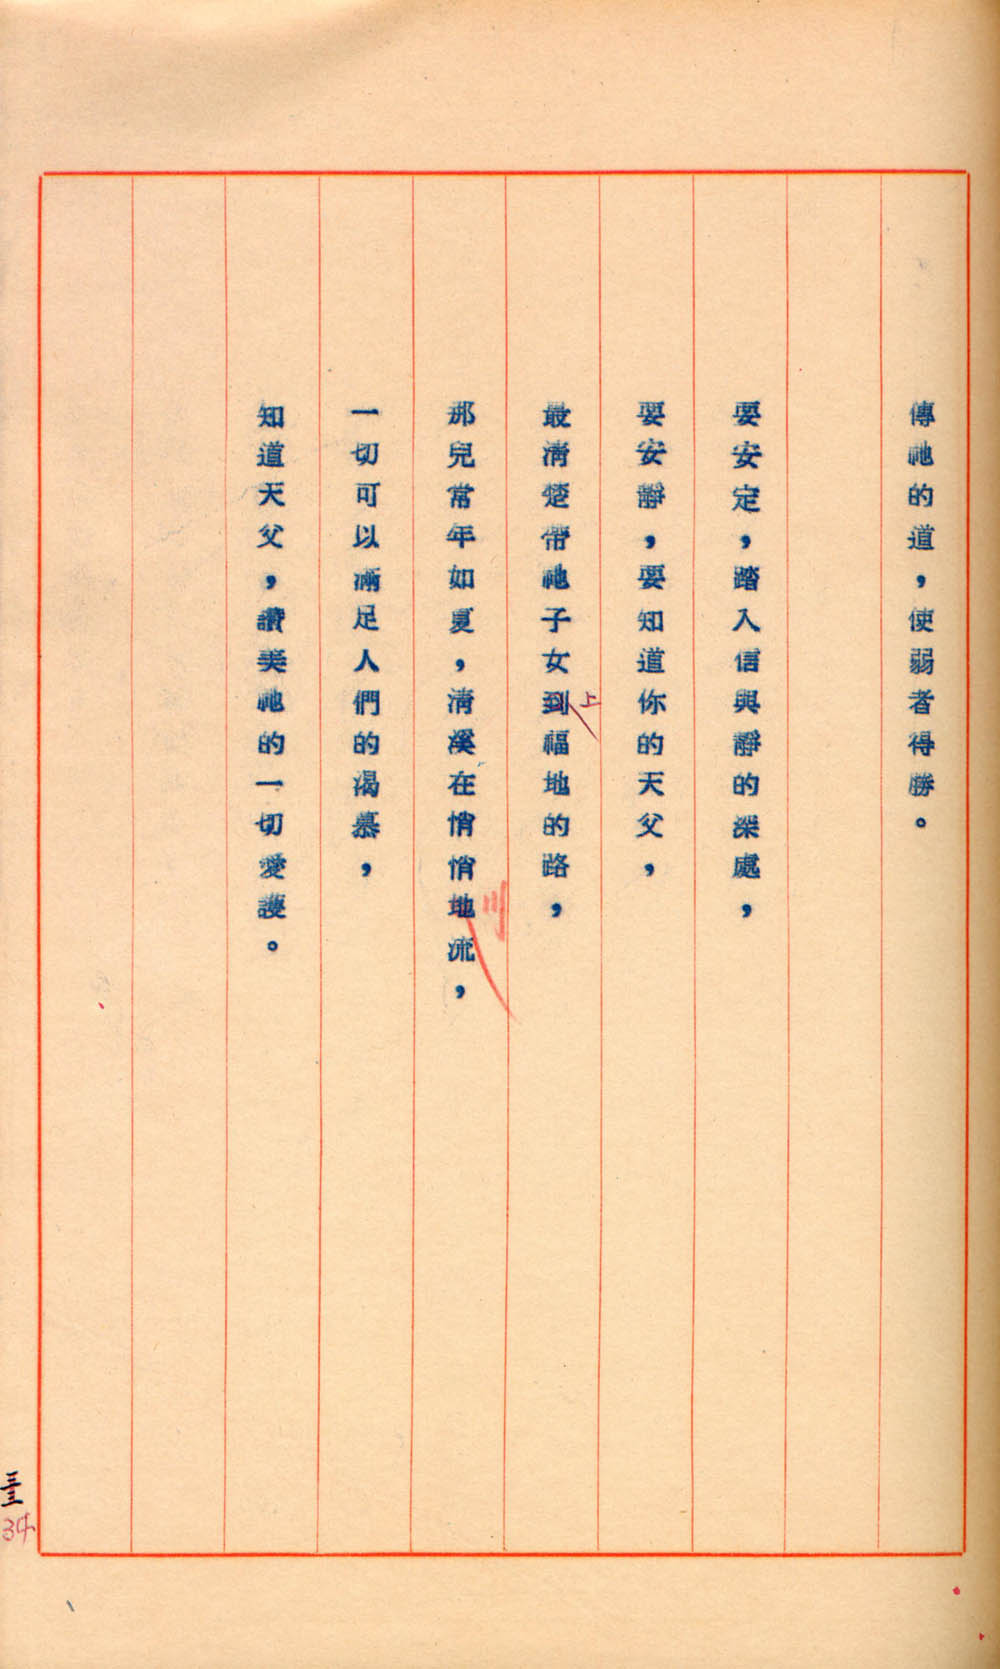 傳祂的道，使弱者得勝。
要安定，踏入信與靜的深處，
要安靜，要知道你的天父，
最清楚帶祂子女到福地的路，
上
那兒常年如夏，清溪在悄悄地流，
川
一切可以滿足人們的渴慕，
知道天父，讚美祂的一切愛護。
34